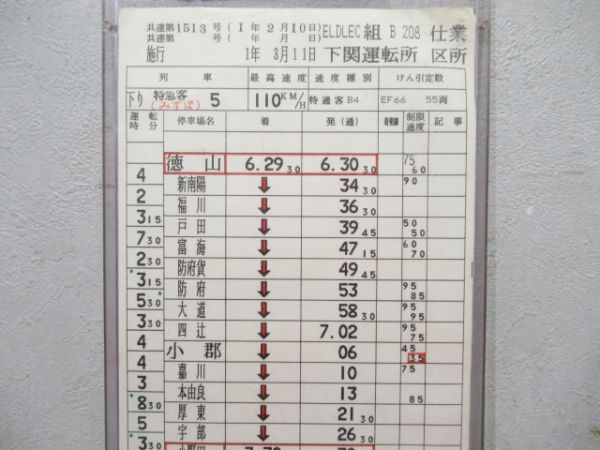 共達第1513号(1年2月10日) ELDLEC 組 B 208 仕業
共達第 号( 年 月 日)
施行 1年 3月11日 下関運転所 区所
列車 最高速度 速度種別 けん引定数
下り 特急客 (みずほ) 5 110KM/H 特通客B4 EF66 55両
運転時分 停車場名 着 発(通) 制限速度 記事
徳山 6.29 30 6.30 30 75 60
4 新南陽 ↓ 34 30 90
2 福川 ↓ 36 30
3 15 戸田 ↓ 39 45 50 50
7 30 富海 ↓ 47 15 60 70
2 30 防府貨 ↓ 49 45
3 15 防府 ↓ 53 95 85
5 30 大道 ↓ 58 30 95 95
3 30 四辻 ↓ 7.02 95 75
4 小郡 ↓ 06 45 35
4 嘉川 ↓ 10 75
3 本由良 ↓ 13 85
8 30 厚東 ↓ 21 30
5 宇部 ↓ 26 30
3 30